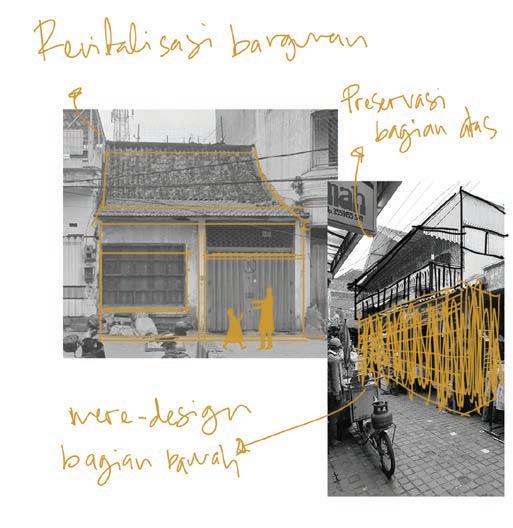 Revitalisasi bangunan
Preservasi
bagian atas
man
mere-design
bagian bawah